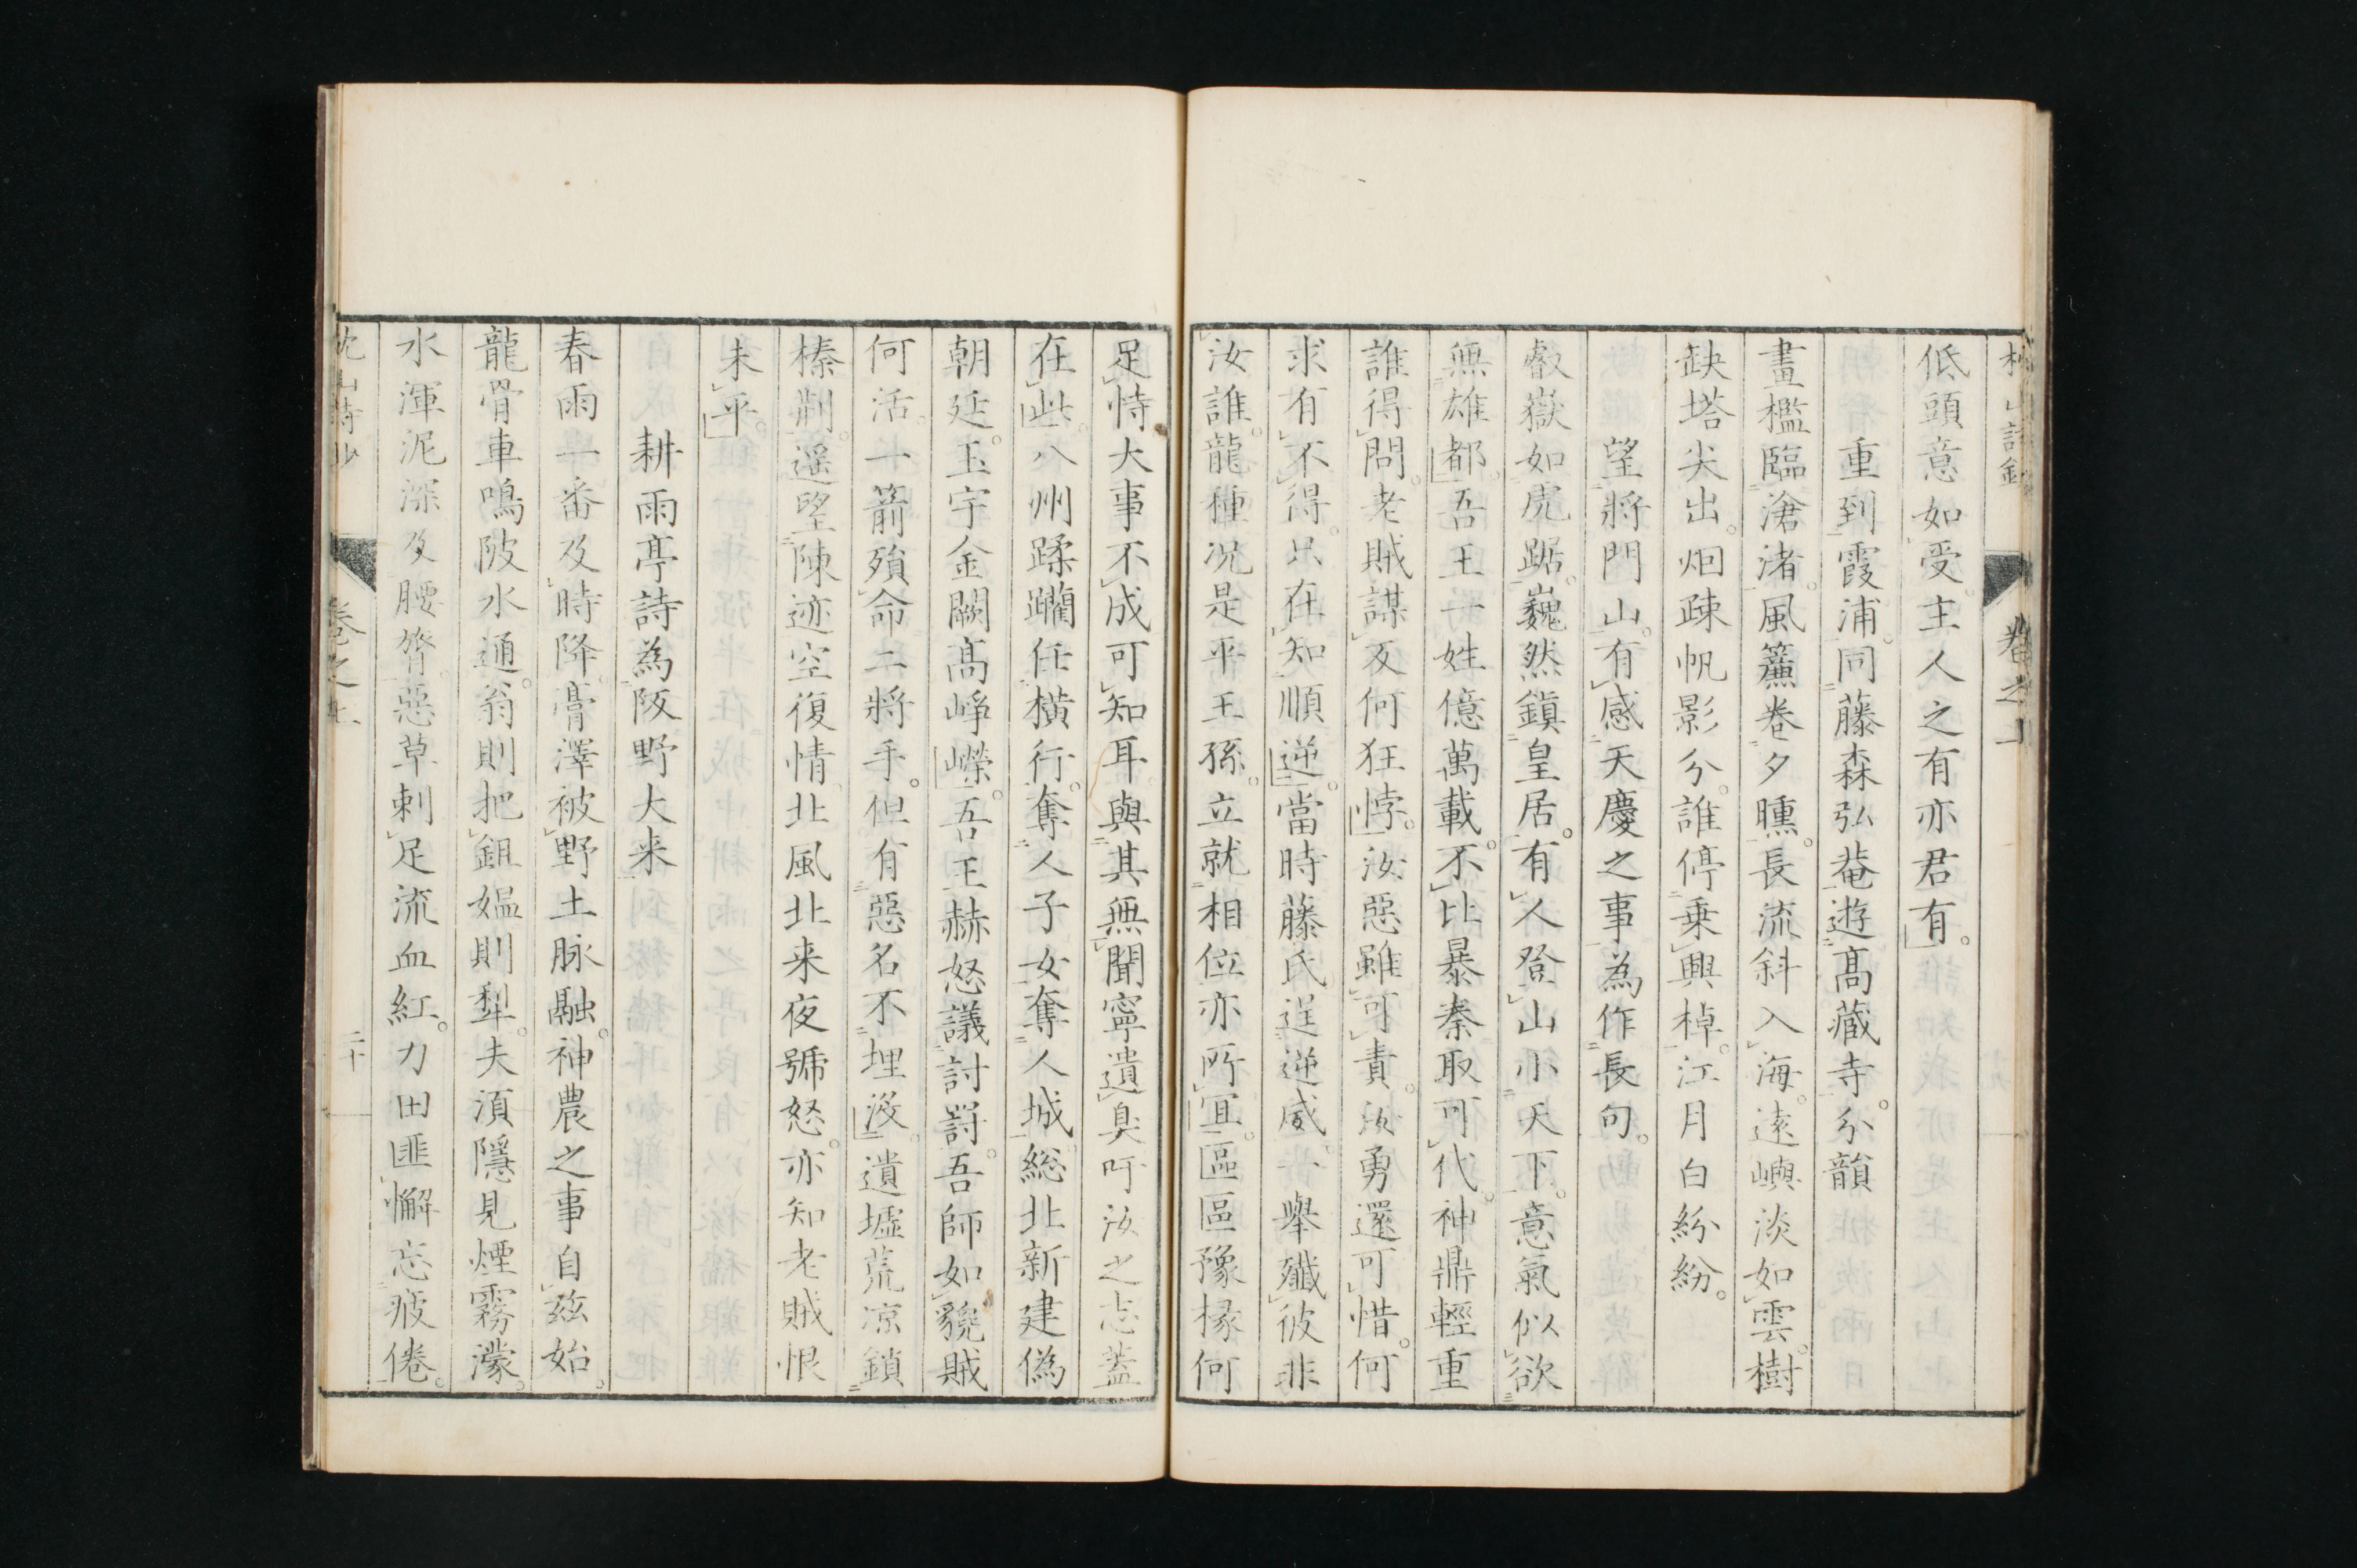 低頭意如受主人之有亦君有。
重到霞浦。同藤森弘菴遊髙藏寺。分韻
畫檻臨滄渚。風簾巻夕曛。長流斜入海。遠嶼淡如雲。樹
缺塔尖出。烟疎帆影分。誰停乗興棹。江月白紛紛。
望將門山。有感天慶之事為作長句。
叡嶽如虎踞。巍然鎮皇居。有人登山小天下。意氣似欲
無雄都。吾王一姓億萬載。不比暴秦取可代。神鼎輕重
誰得問。老賊謀反何狂悖。汝惡雖可責。汝勇還可惜。何
求有不得。只在知順逆。當時藤氏逞逆威。一舉殱彼非
汝誰。龍種况是平王孫。立就相位亦所冝。區區豫掾何
足恃大事不成可知耳與其無聞寧遺臭吁汝之志蓋
在此。八州蹂躪任横行。奪人子女奪人城。総北新建偽
朝廷。玉宇金闕髙崢嶸。吾王赫怒議討罰。吾師如貔賊
何活。一箭殞命二將手。但有惡名不埋没。遺墟荒凉鎖
榛荆。遥望陳迹空復情。北風北来夜號怒。亦知老賊恨
未平。
耕雨亭詩為阪野大来
春雨一番及時降。膏澤被野土脉融。神農之事自玆始。
龍骨車鳴陂水通。翁則把鉏媼則犁。夫須隱見煙霧濛。
水渾泥深及腰膂。惡草刺足流血紅。力田匪懈忘疲倦。
巻之上
二十